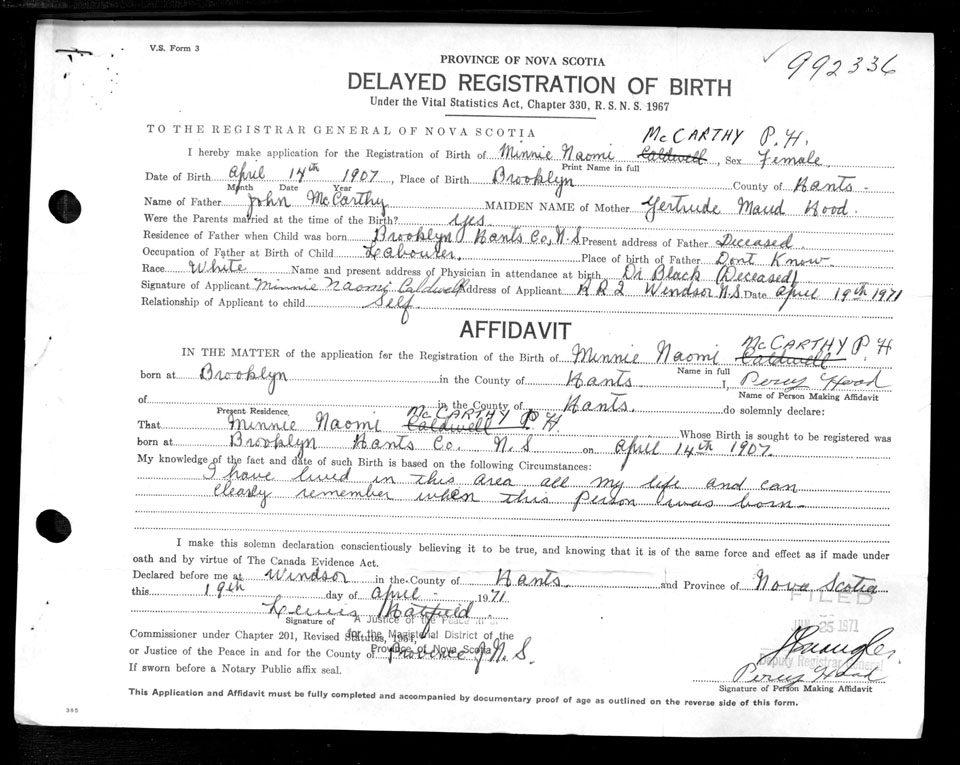 V.S. Form 3
992336
PROVINCE OF NOVA SCOTIA
DELAYED REGISTRATION OF BIRTH
Under the Vital Statistics Act, Chapter 330, R.S.N.S. 1967
TO THE REGISTRAR GENERAL OF NOVA SCOTIA
McCARTHY P.H.
I hereby make application for the Registration of Birth of Minnie Naomi Caldwell, Sex Female
Print Name in full
Date of Birth April 14th 1907, Place of Birth Brooklyn County of Hants
Month Date Year
Name of Father John McCarthy MAIDEN NAME of Mother Gertrude Maud Hood
Were the Parents married at the time of the Birth? Yes
Residence of Father when Child was born Brooklyn Hants Co, N.S Present address of Father Deceased
Occupation of Father at Birth of Child Labourer. Place of birth of Father Dont Know
Race White Name and present address of Physician in attendance at birth Dr Black (Deceased)
Signature of Applicant Minnie Naomi Caldwell Address of Applicant R R 2 Windsor N.S. Date April 19th 1971
Relationship of Applicant to child Self
AFFIDAVIT
McCARTHY P.H
IN THE MATTER of the application for the Registration of the Birth of Minnie Naomi Caldwell
Name in full
born at Brooklyn in the County of Hants I, Percy Hood
Name of Person Making Affidavit
of in the County of Hants. do solemnly declare:
Present Residence
McCARTHY P.H
That Minnie Naomi Caldwell Whose Birth is sought to be registered was
born at Brooklyn Hants Co. N.S on April 14th 1907.
My knowledge of the fact and date of such Birth is based on the following Circumstances:
I have lived in this area all my life and can
clearly remember when this person was born
I make this solemn declaration conscientiously believing it to be true, and knowing that it is of the same force and effect as if made under
oath and by virtue of The Canada Evidence Act.
Declared before me at Windsor in the County of Hants and Province of Nova Scotia
this 19th day of April 1971
FILED
25 1971
Lewis Hatfield
Signature of A Justice of the Peace in or
Commissioner under Chapter 201, Revised Statutes, 1954,
for the Magisterial District of the
or Justice of the Peace in and for the County of Province of N.S.
Province of Nova Scotia
If sworn before a Notary Public affix seal.
Deputy Registrar General
Percy Hood
Signature of Person Making Affidavit
This Application and Affidavit must be fully completed and accompanied by documentary proof of age as outlined on the reverse side of this form.